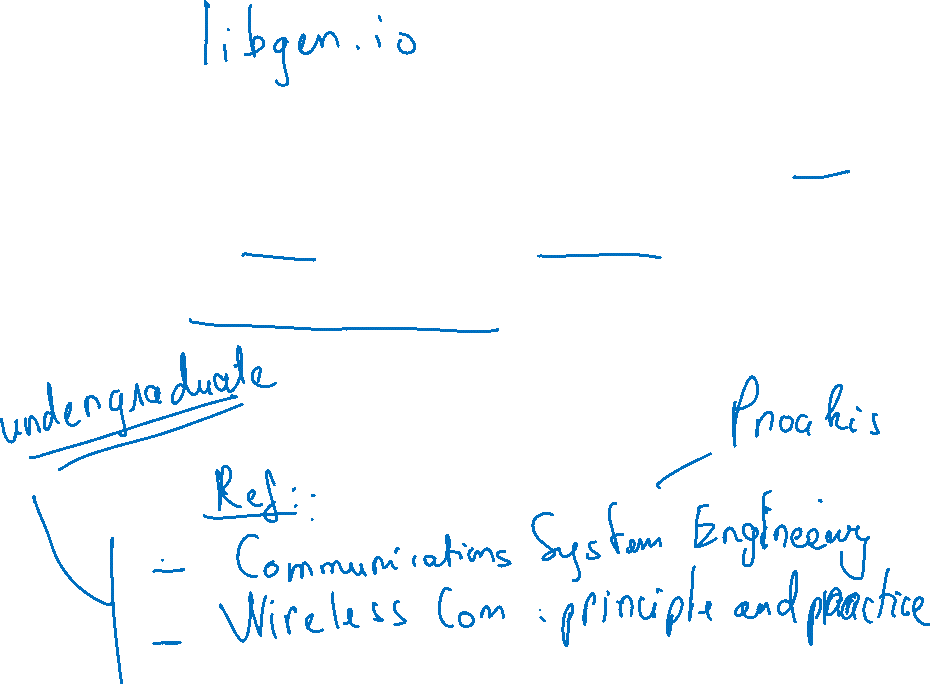 libgen.io
undergraduate
Proakis
Ref::
- Communications System Engineering
- Wireless Com : principle and practice